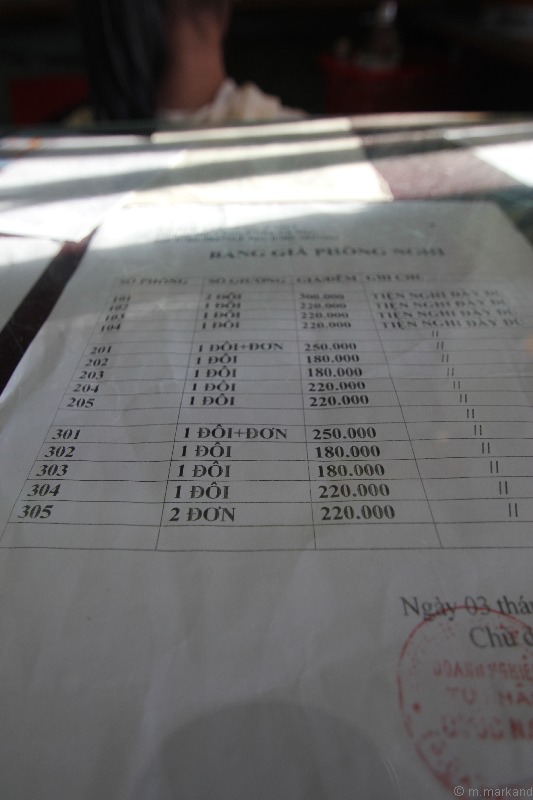 BẢNG GIÁ PHÒNG NGHỈ
SỐ PHÒNG SỐ GIƯỜNG GIÁ/ĐÊM GHI CHÚ
101 2 ĐÔI 300.000 TIỆN NGHI ĐẦY ĐỦ
102 1 ĐÔI 220.000 TIỆN NGHI ĐẦY ĐỦ
103 1 ĐÔI 220.000 TIỆN NGHI ĐẦY ĐỦ
104 1 ĐÔI 220.000 TIỆN NGHI ĐẦY ĐỦ
//
201 1 ĐÔI+ĐƠN 250.000 //
202 1 ĐÔI 180.000 //
203 1 ĐÔI 180.000 //
204 1 ĐÔI 220.000 //
205 1 ĐÔI 220.000 //
//
301 1 ĐÔI+ĐƠN 250.000 //
302 1 ĐÔI 180.000 //
303 1 ĐÔI 180.000 //
304 1 ĐÔI 220.000 //
305 2 ĐƠN 220.000 //
Ngày 03
DOANH NGHIỆ
© m.markand